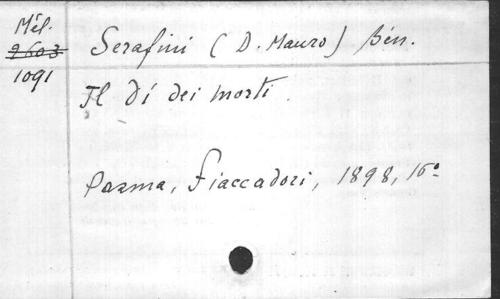 Mél.
2603
1091
Serafini (D. Mauro) Bén.
Il dí dei morti.
Parma, Fiaccadori, 1898, 16º